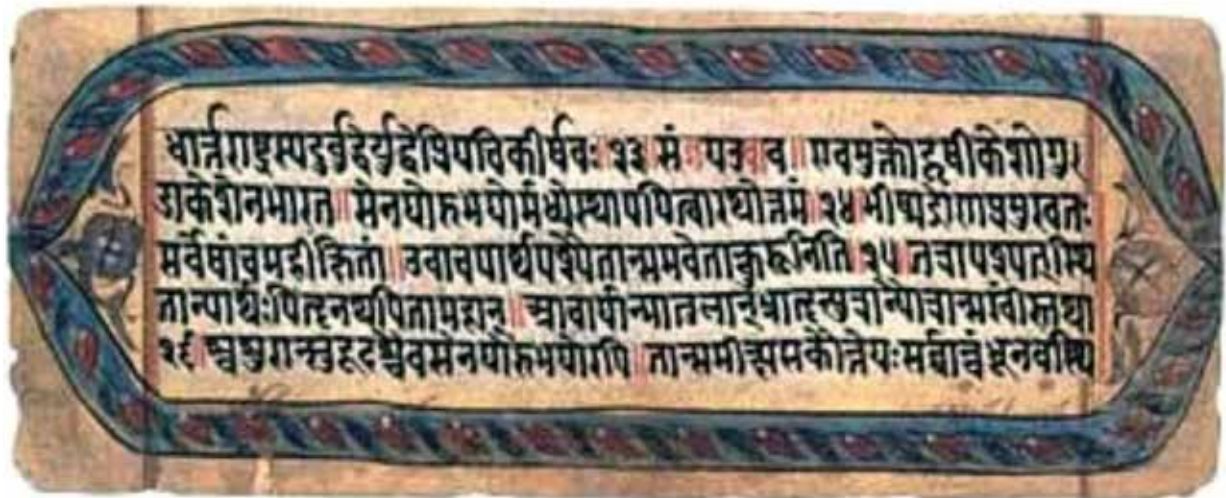 धार्तराष्ट्रस्यदुर्बुद्धेर्युद्धेप्रियचिकीर्षवः ॥२३॥ सं॰ ॥ एवमुक्तोहृषीकेशोगु
डाकेशेनभारत ॥ सेनयोरुभयोर्मध्येस्थापयित्वारथोत्तमं ॥२४॥ भीष्मद्रोणप्रमुखतः
सर्वेषांचमहीक्षितां ॥ उवाचपार्थपश्यैतान्समवेतान्कुरूनिति ॥२५॥ तत्रापश्यत्स्थि
तान्पार्थःपितॄनथपितामहान् ॥ आचार्यान्मातुलान्भ्रातॄन्पुत्रान्पौत्रान्सखींस्तथा
२६॥ श्वशुरान्सुहृदश्चैवसेनयोरुभयोरपि ॥ तान्समीक्ष्यसकौंतेयःसर्वान्बंधूनवस्थि